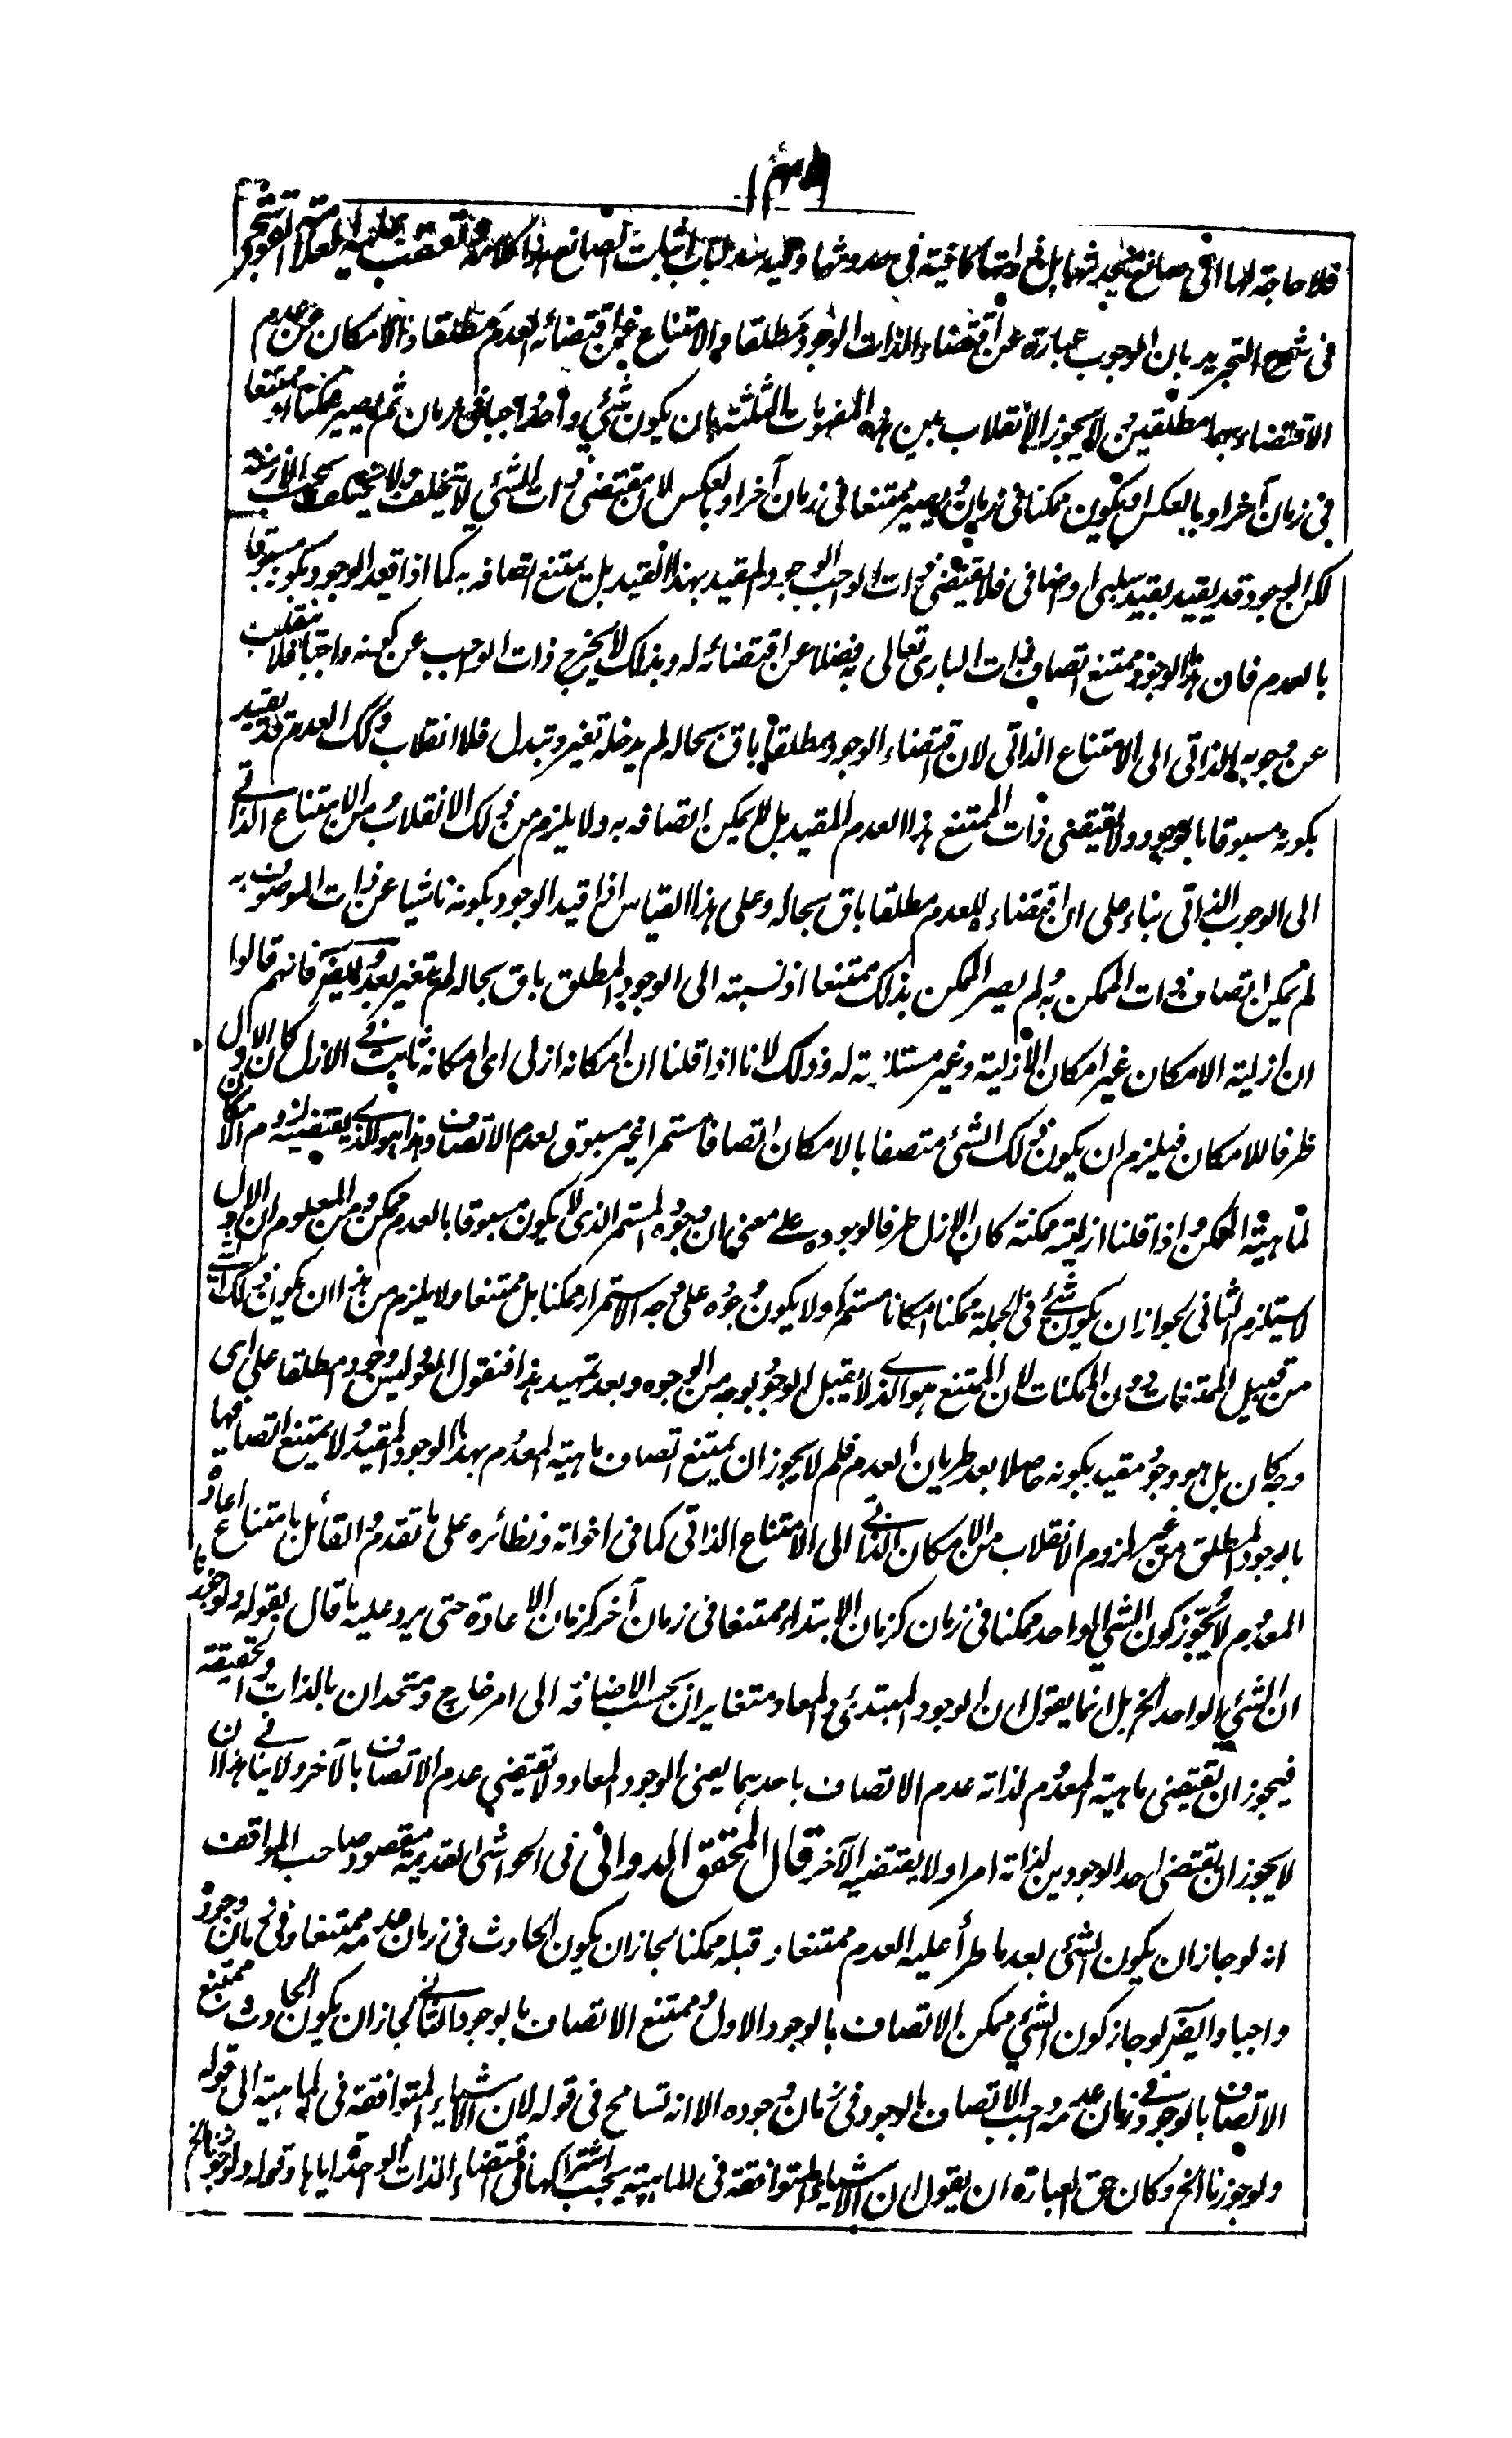 ١٣٥
فلا حاجة لها الى صانع يحدثها بل ذواتها كافية فى حدوثها وفيه سد لباب اثبات الصانع هذا كلامه وتعقب عليه العلامة القوشجى
فى شرح التجريد بان الوجوب عبارة عن اقتضاء الذات الوجود مطلقا والامتناع عن اقتضائه العدم مطلقا والامكان عن عدم
الاقتضاء بهما مطلقين ولا يجوز الانقلاب بين هذه المفهومات الثلثة بان يكون شئ واحد واجبا فى زمان ثم يصير ممكنا او ممتنعا
فى زمان آخر او بالعكس او يكون ممكنا فى زمان ويصير ممتنعا فى زمان آخر او بالعكس لان مقتضى ذات الشئ لا يتخلف ولا يختلف بحسب الازمنة
لكن الوجود قد يقيد بقيد سلبى او اضافى فلا يقتضى ذات الواجب الوجود المقيد بهذا القيد بل يمتنع اتصافه به كما اذا قيد الوجود بكونه مسبوقا
بالعدم فان هذا الوجود ممتنع اتصاف ذات البارى تعالى به فضلا عن اقتضائه له وبذلك لا يخرج ذات الواجب عن كونه واجبا فلا ينقلب
عن وجوبه الذاتى الى الامتناع الذاتى لان اقتضاء الوجود مطلقا باق بحاله لم يدخله تغير وتبدل فلا انقلاب وكذلك العدم قد يقيد
بكونه مسبوقا بالوجود ولا يقتضى ذات الممتنع هذا العدم المقيد بل لا يمكن اتصافه به ولا يلزم من ذلك الانقلاب من الامتناع الذاتے
الى الوجوب الذاتى بناء على ان اقتضاء العدم مطلقا باق بحاله وعلى هذا القياس اذا قيد الوجود بكونه ناشيا عن ذات الموصوف به
لم يمكن اتصاف ذات الممكن به ولم يصر الممكن بذلك ممتنعا اذ نسبته الى الوجود المطلق باق بحاله لم يتغير بعد وايضا فانهم قالوا
ان ازلية الامكان غير امكان الازلية وغير مستلزمة له وذلك لانا اذا قلنا ان امكانه ازلى اى امكانه ثابت فے الازل كان الازل
ظرفا للامكان فيلزم ان يكون ذلك الشئ متصفا بالامكان اتصافا مستمرا غير مسبوق بعدم الاتصاف وهذا هو الذے يقتضيه لزوم الامكان
لماهية الممكن واذا قلنا ازليته ممكنة كان الازل ظرفا لوجوده على معنى ان وجوده المستمر الذى لا يكون مسبوقا بالعدم ممكن ومن المعلوم ان الاول
لا يستلزم الثانى لجواز ان يكون شئ فى الجملة ممكنا امكانا مستمرا ولا يكون وجوده على وجه الاستمرار ممكنا بل ممتنعا ولا يلزم من هذا ان يكون ذلك الشئ
من قبيل الممتنعات دون الممكنات لان الممتنع هو الذے لا يقبل الوجود بوجه من الوجوه وبعد تمهيد هذا فنقول العود ليس وجودا مطلقا على اى
وجه كان بل هو وجود مقيد بكونه حاصلا بعد طريان العدم فلم لا يجوز ان يمتنع اتصاف ماهية المعدوم بهذا الوجود المقيد ولا يمتنع اتصافها
بالوجود المطلق من غير لزوم الانقلاب من الامكان الذاتے الى الامتناع الذاتى كما فى اخواته ونظائره على ما تقدم والقائل بامتناع اعادة
المعدوم لا يجوز كون الشئ الواحد ممكنا فى زمان كزمان الابتداء وممتنعا فى زمان آخر كزمان الاعادة حتى يرد عليه ما قال بقوله ولو جوزنا
ان الشئ الواحد الخ بل انما يقول ان الوجود المبتدئ والمعاد متغايران بحسب الاضافة الى امر خارج ومتحدان بالذات والحقيقة
فيجوز ان يقتضى ماهية المعدوم لذاته عدم الاتصاف باحدهما يعنى الوجود المعاد ولا يقتضى عدم الاتصاف بالآخر ولا ينافے هذا ان
لا يجوز ان يقتضى احد الوجودين لذاته امرا ولا يقتضيه الآخر قال المحقق الدوانى فى الحواشى القديمة مقصود صاحب المواقف
انه لو جاز ان يكون الشئ بعد ما طرأ عليه العدم ممتنعا وقبله ممكنا لجاز ان يكون الحادث فى زمان عدمه ممتنعا وفى زمان وجوده
واجبا وايضا لو جاز كون الشئ ممكن الاتصاف بالوجود الاول وممتنع الاتصاف بالوجود الثانے لجاز ان يكون الحادث ممتنع
الاتصاف بالوجود فے زمان عدمه وواجب الاتصاف بالوجود فى زمان وجوده الا انه تسامح فى قوله لان الاشياء المتوافقة فى الماهية الى قوله
ولو جوزنا الخ وكان حق العبارة ان يقول ان الاشياء المتوافقة فى الماهية يجب اشتراكها فى اقتضاء الذات الواحدة اياها وقوله ولو جوزنا الخ